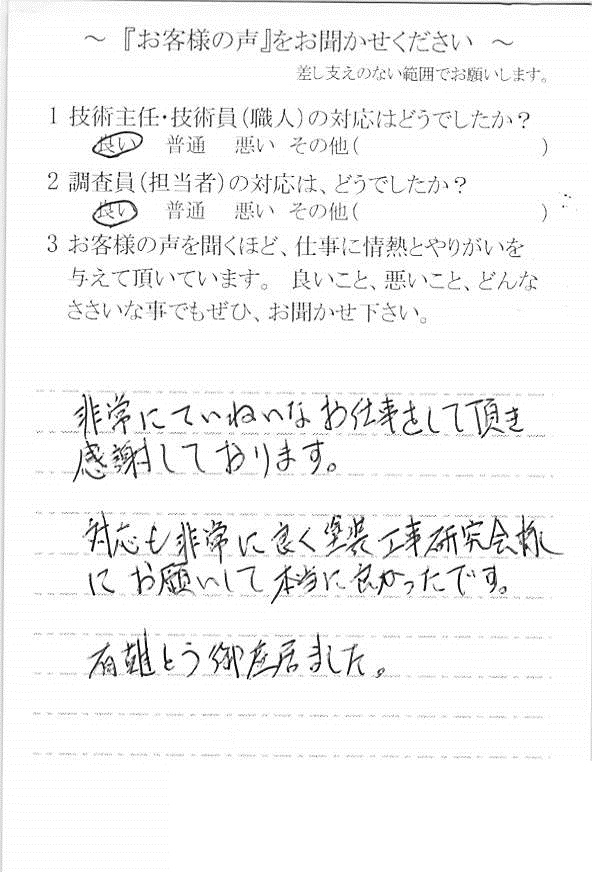 ～ 『お客様の声』をお聞かせください ～
差し支えのない範囲でお願いします。
1 技術主任・技術員(職人)の対応はどうでしたか？
良い 普通 悪い その他( )
2 調査員(担当者)の対応は、どうでしたか？
良い 普通 悪い その他( )
3 お客様の声を聞くほど、仕事に情熱とやりがいを
与えて頂いています。 良いこと、悪いこと、どんな
ささいな事でもぜひ、お聞かせ下さい。
非常にていねいなお仕事をして頂き
感謝しております。
対応も非常に良く塗装工事研究会様
にお願いして本当に良かったです。
有難とう御座居ました。